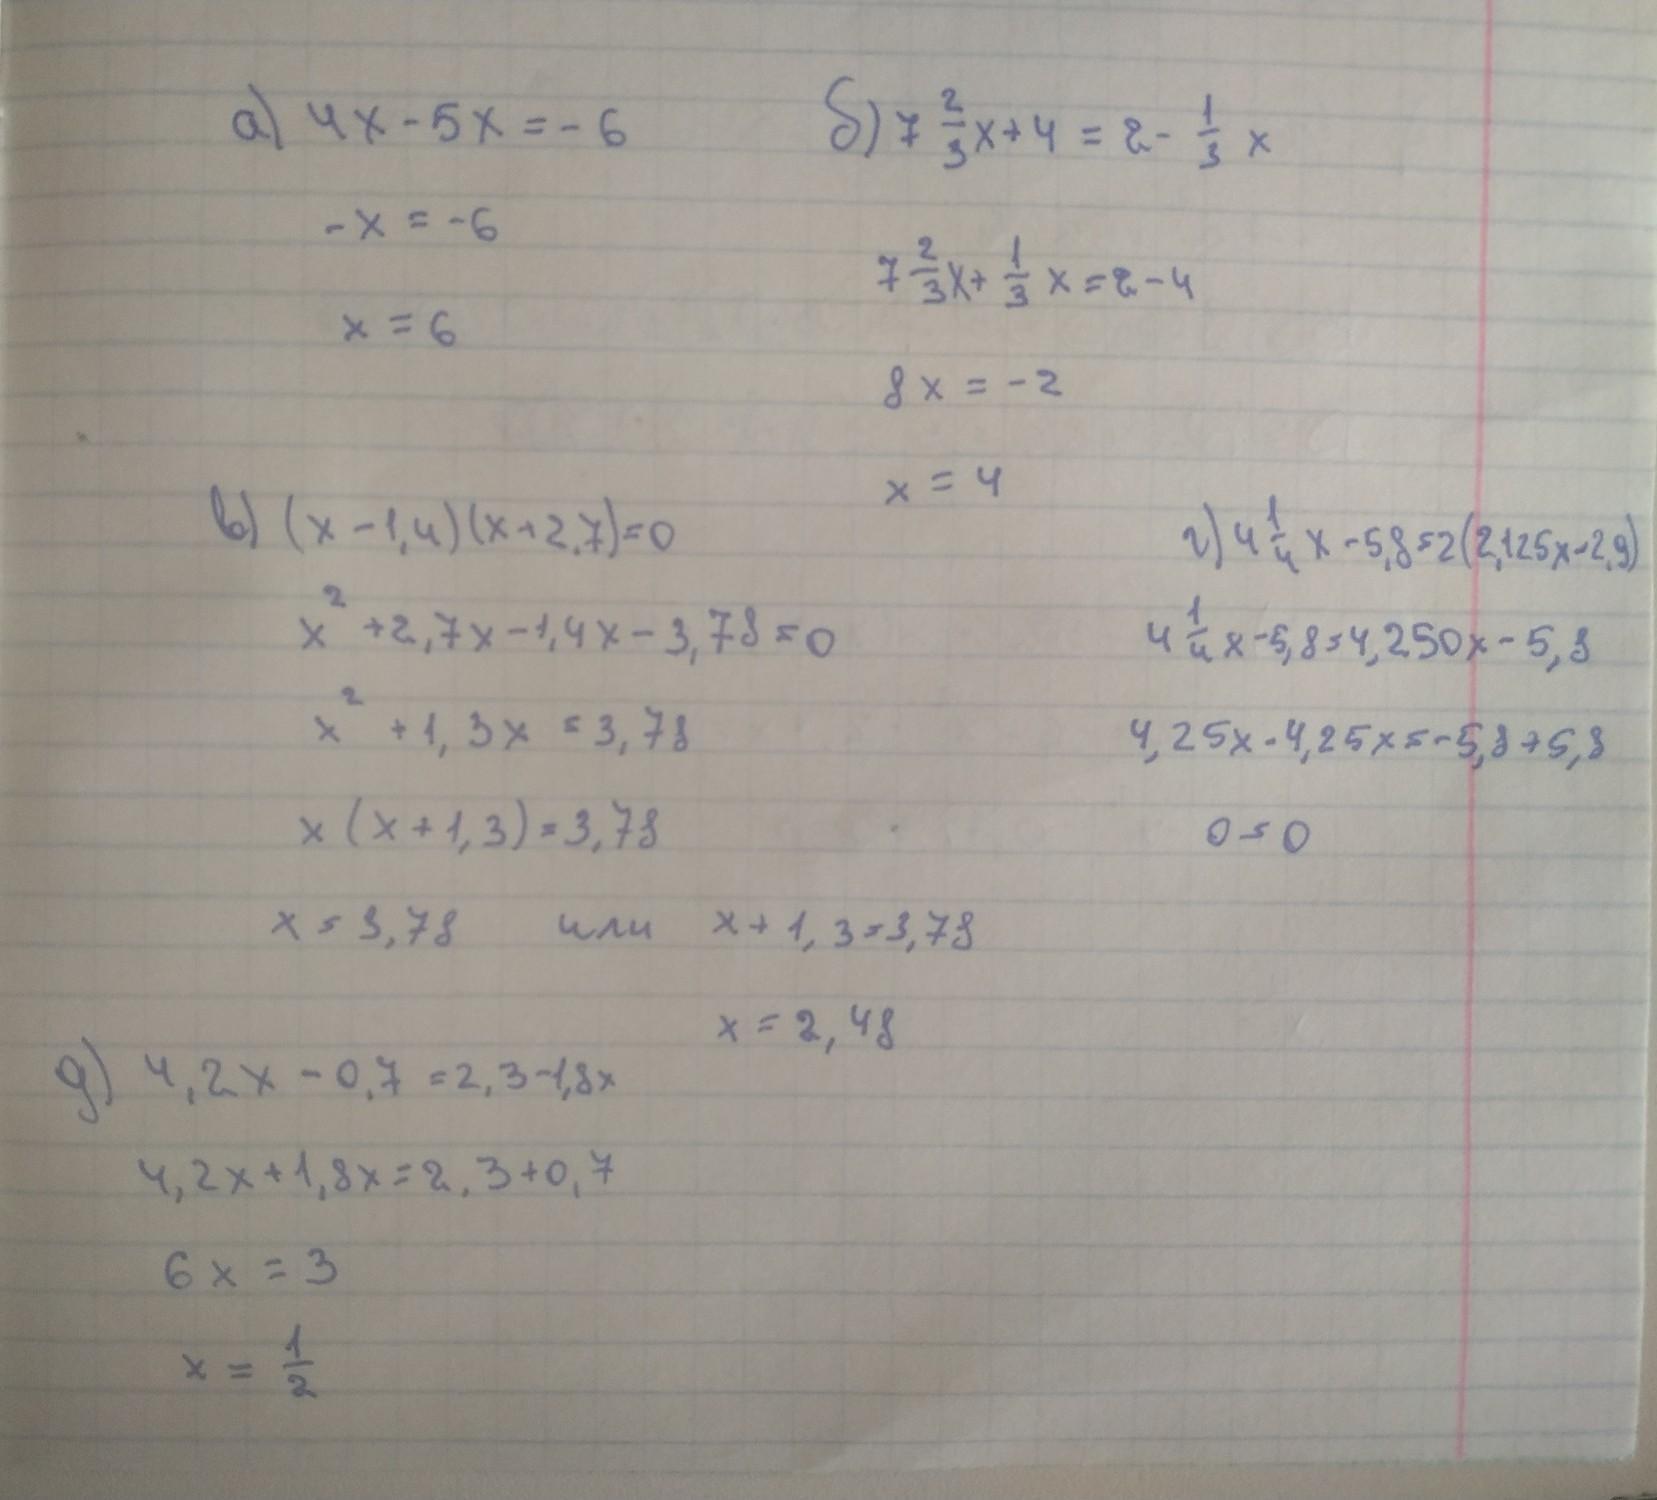 а) 4x - 5x = - 6
-x = -6
x = 6
б) 7 2/3 x + 4 = 2 - 1/3 x
7 2/3 x + 1/3 x = 2 - 4
8x = -2
x = 4
в) (x - 1,4)(x + 2,7) = 0
x² + 2,7x - 1,4x - 3,78 = 0
x² + 1,3x = 3,78
x (x + 1,3) = 3,78
x = 3,78 или x + 1,3 = 3,78
x = 2,48
г) 4 1/4 x - 5,8 = 2(2,125x - 2,9)
4 1/4 x - 5,8 = 4,250x - 5,8
4,25x - 4,25x = -5,8 + 5,8
0 = 0
д) 4,2x - 0,7 = 2,3 - 1,8x
4,2x + 1,8x = 2,3 + 0,7
6x = 3
x = 1/2